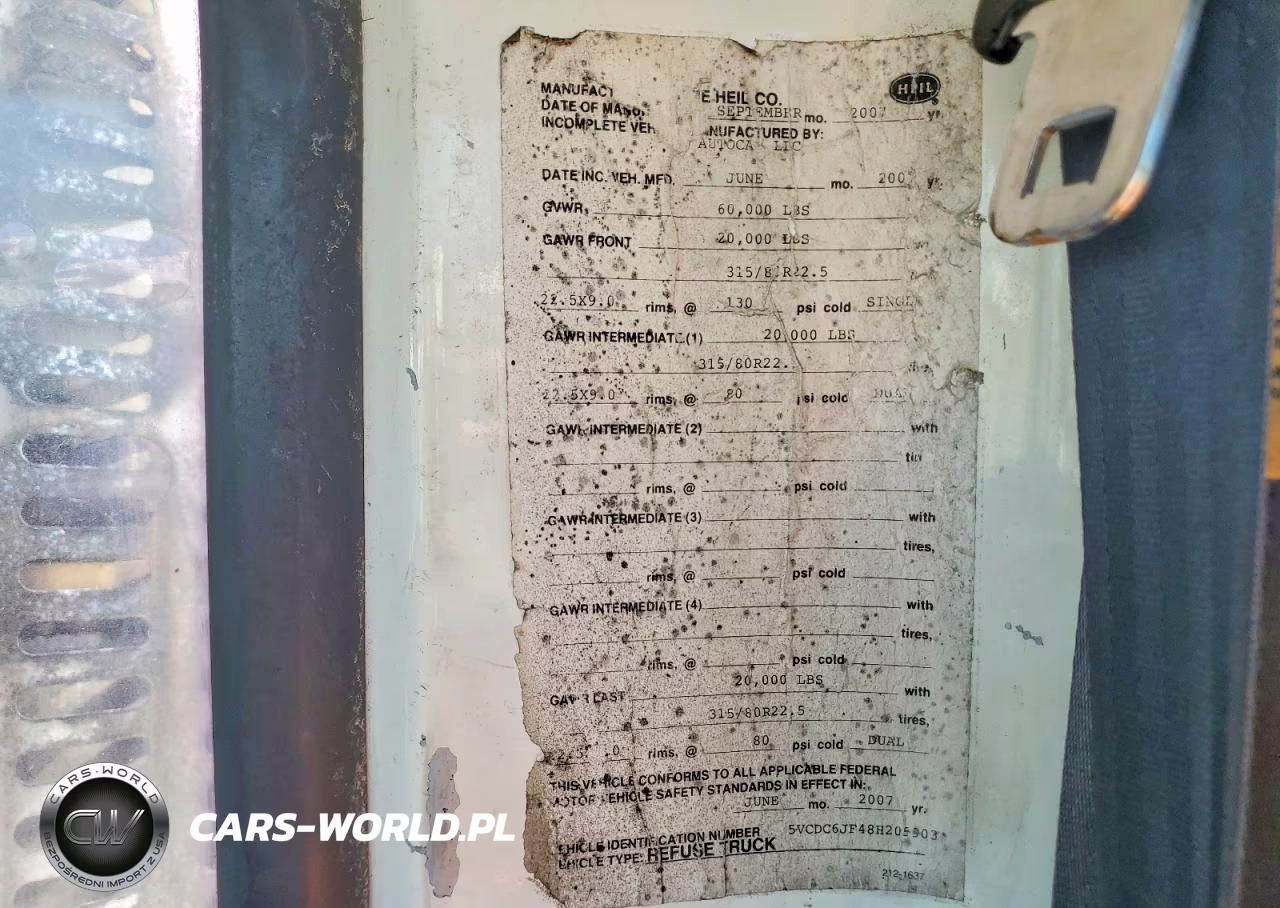 HEIL
MANUFACT E HEIL CO.
DATE OF MANU. SEPTEMBER mo. 2007 yr.
INCOMPLETE VEH ANUFACTURED BY:
AUTOCA LLC
DATE INC. VEH. MFD. JUNE mo. 200 yr.
GVWR, 60,000 LBS
GAWR FRONT 20,000 LBS
315/80R22.5
22.5X9.0 rims, @ 130 psi cold SINGL
GAWR INTERMEDIATE (1) 20,000 LBS
315/80R22.
22.5X9.0 rims, @ 80 psi cold DUAL
GAWR INTERMEDIATE (2) with
rims, @ psi cold
GAWR INTERMEDIATE (3) with
tires,
rims, @ psi cold
GAWR INTERMEDIATE (4) with
tires,
rims, @ psi cold
GAWR LAST 20,000 LBS with
315/80R22.5 tires,
22.5 .0 rims, @ 80 psi cold DUAL
THIS VEHICLE CONFORMS TO ALL APPLICABLE FEDERAL
MOTOR VEHICLE SAFETY STANDARDS IN EFFECT IN:
JUNE mo. 2007 yr.
EHICLE IDENTIFICATION NUMBER
EHICLE TYPE: REFUSE TRUCK
212-1637
CARS-WORLD
CW
BEZPOŚREDNI IMPORT Z USA
CARS-WORLD.PL